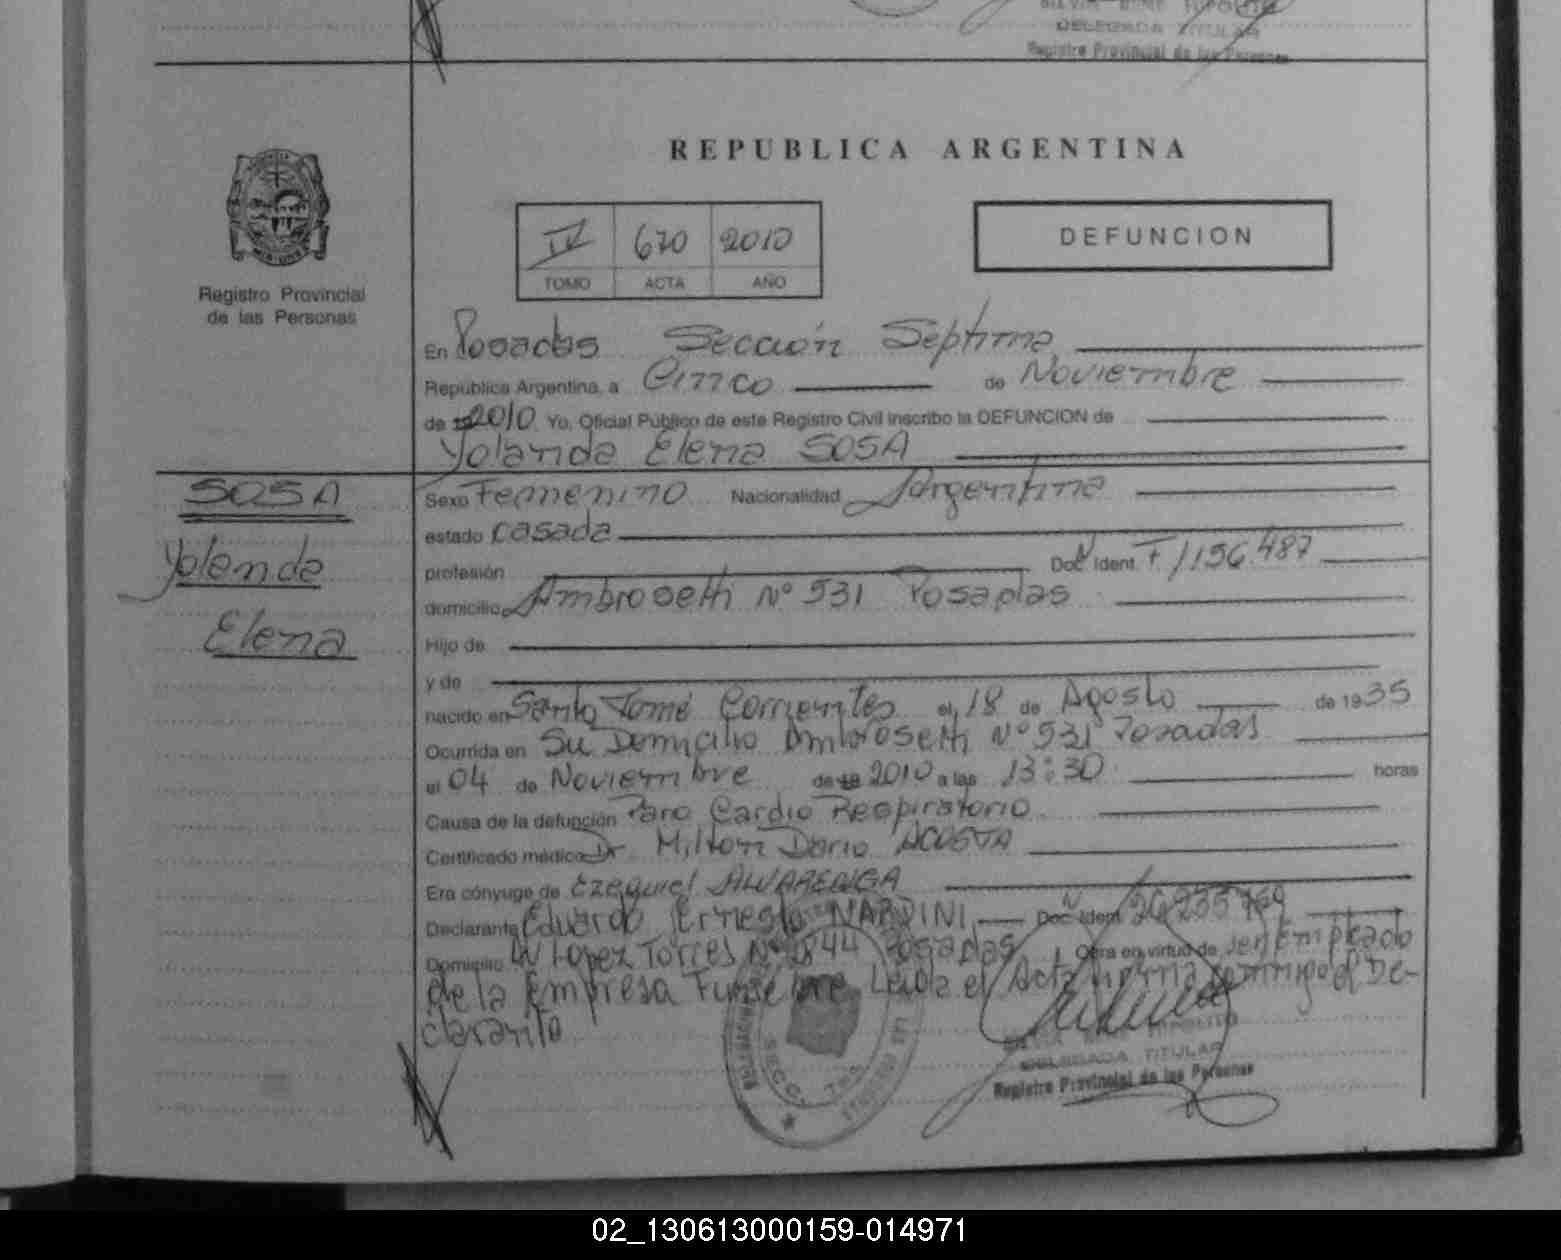 SILVIA RENE HIPOLITO
DELEGADA TITULAR
Registro Provincial de las Personas
REPUBLICA ARGENTINA
IV 670 2010
TOMO ACTA AÑO
DEFUNCION
Registro Provincial
de las Personas
En Posadas Sección Séptima
República Argentina, a Cinco de Noviembre
de 2010 Yo, Oficial Público de este Registro Civil inscribo la DEFUNCION de
Yolanda Elena SOSA
SOSA
Yolanda
Elena
Sexo Femenino Nacionalidad Argentina
estado casada
profesión Doc. Ident. F 1156.487
domicilio Ambrosetti Nº 531 Posadas
Hijo de
y de
nacido en Santo Tomé Corrientes el 18 de Agosto de 1935
Ocurrida en Su Domicilio Ambrosetti Nº 531 Posadas
el 04 de Noviembre de 2010 a las 13:30 horas
Causa de la defunción Paro Cardio Respiratorio
Certificado médico Dr Milton Dario ACOSTA
Era cónyuge de Ezequiel ALVARENGA
Declarante Eduardo Ernesto NARDINI Doc. Ident.
Domicilio Av Lopez Torres Nº 1844 Posadas Obra en virtud de ser Empleado
de la Empresa Funebre Leida el Acta firma conmigo el De-
clarante
SECC. 7ma
SILVIA RENE HIPOLITO
DELEGADA TITULAR
Registro Provincial de las Personas
02_130613000159-014971